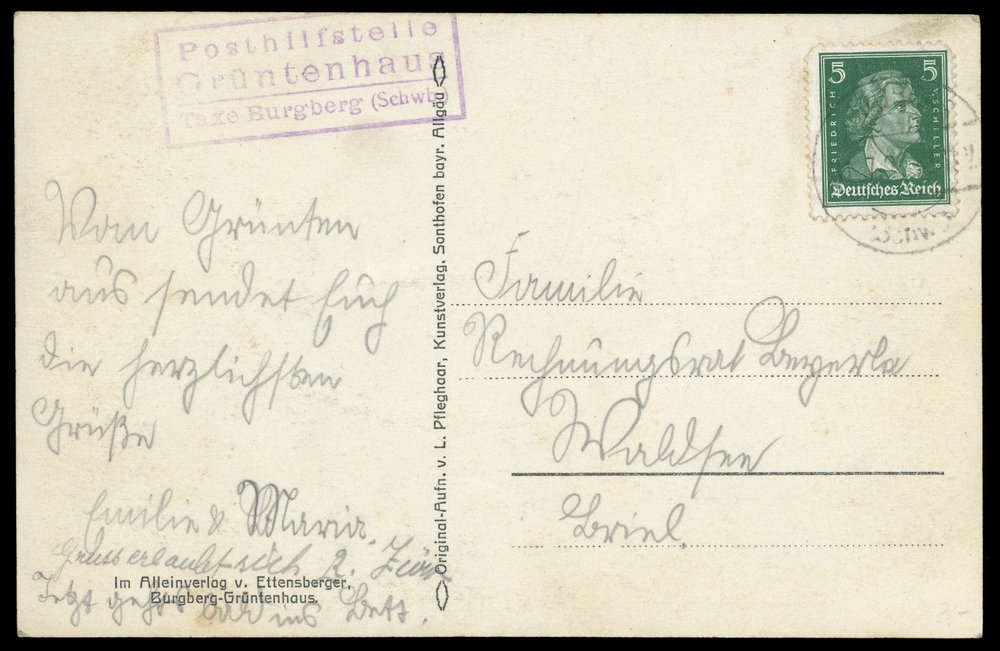 Posthilfstelle
Grüntenhaus
Taxe Burgberg (Schwb)
Vom Grünten
aus sendet Euch
die herzlichsten
Grüße
Emilie & Maria.
Gruss erlaubt sich
Jetzt geht's bald ins Bett.
Im Alleinverlag v. Ettensberger,
Burgberg-Grüntenhaus.
Original-Aufn. v. L. Pfleghaar, Kunstverlag, Sonthofen bayr. Allgäu
5 5
FRIEDRICH V. SCHILLER
Deutsches Reich
(Schw
Familie
Rechnungsrat Beyerle
Waldsee